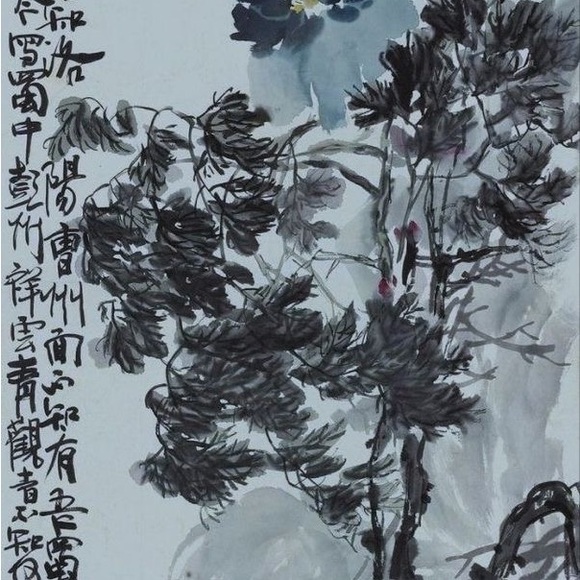 知洛陽曹州而不知有吾蜀
今寫蜀中彭州祥雲青觀者不知